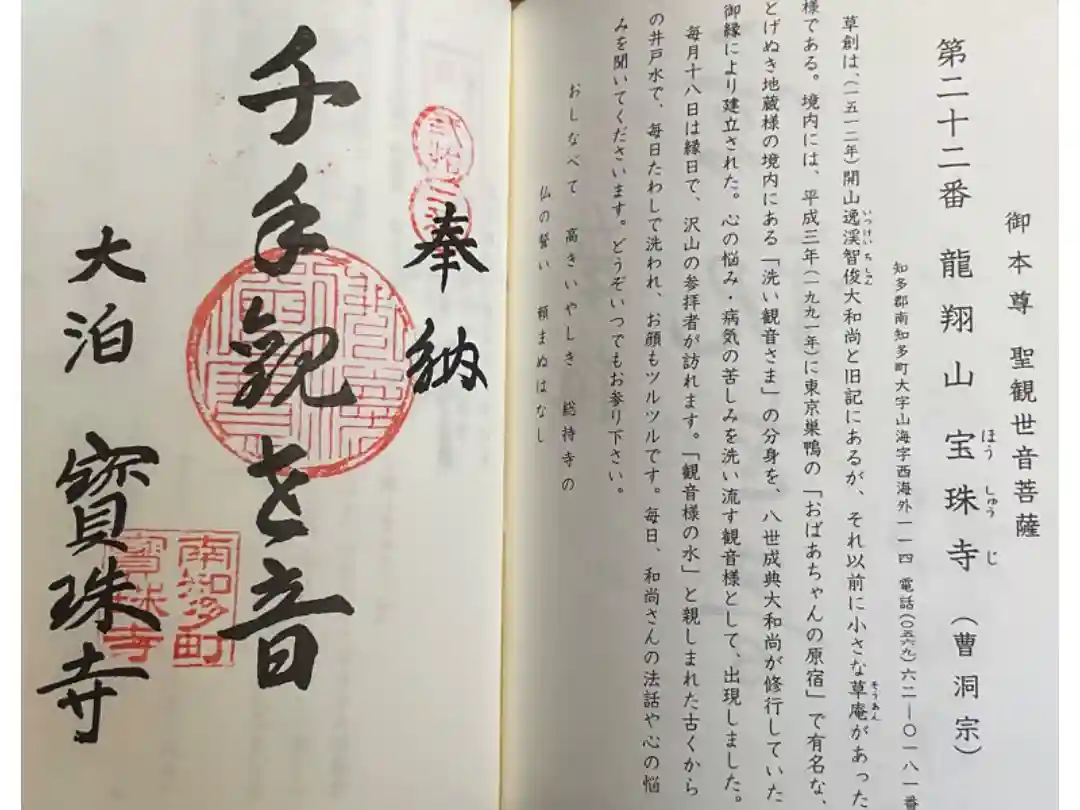 御本尊 聖観世音菩薩
第二十二番 龍翔山 宝珠寺 (曹洞宗)
ほう しゅう じ
知多郡南知多町大字山海字西海外一一四 電話(〇五六九)六二―〇一八一番
草創は、(一五一二年)開山逸渓智俊大和尚と旧記にあるが、それ以前に小さな草庵があった
いつけい ちしゅん
そうあん
様である。境内には、平成三年(一九九一年)に東京巣鴨の「おばあちゃんの原宿」で有名な、
とげぬき地蔵様の境内にある「洗い観音さま」の分身を、八世成典大和尚が修行していた
御縁により建立された。心の悩み・病気の苦しみを洗い流す観音様として、出現しました。
毎月十八日は縁日で、沢山の参拝者が訪れます。「観音様の水」と親しまれた古くから
の井戸水で、毎日たわしで洗われ、お顔もツルツルです。毎日、和尚さんの法話や心の悩
みを聞いてくださいます。どうぞいつでもお参り下さい。
おしなべて 高きいやしき 総持寺の
仏の誓い 頼まぬはなし
奉納
千手観世音
大泊 寳珠寺
南知多町
寳珠寺